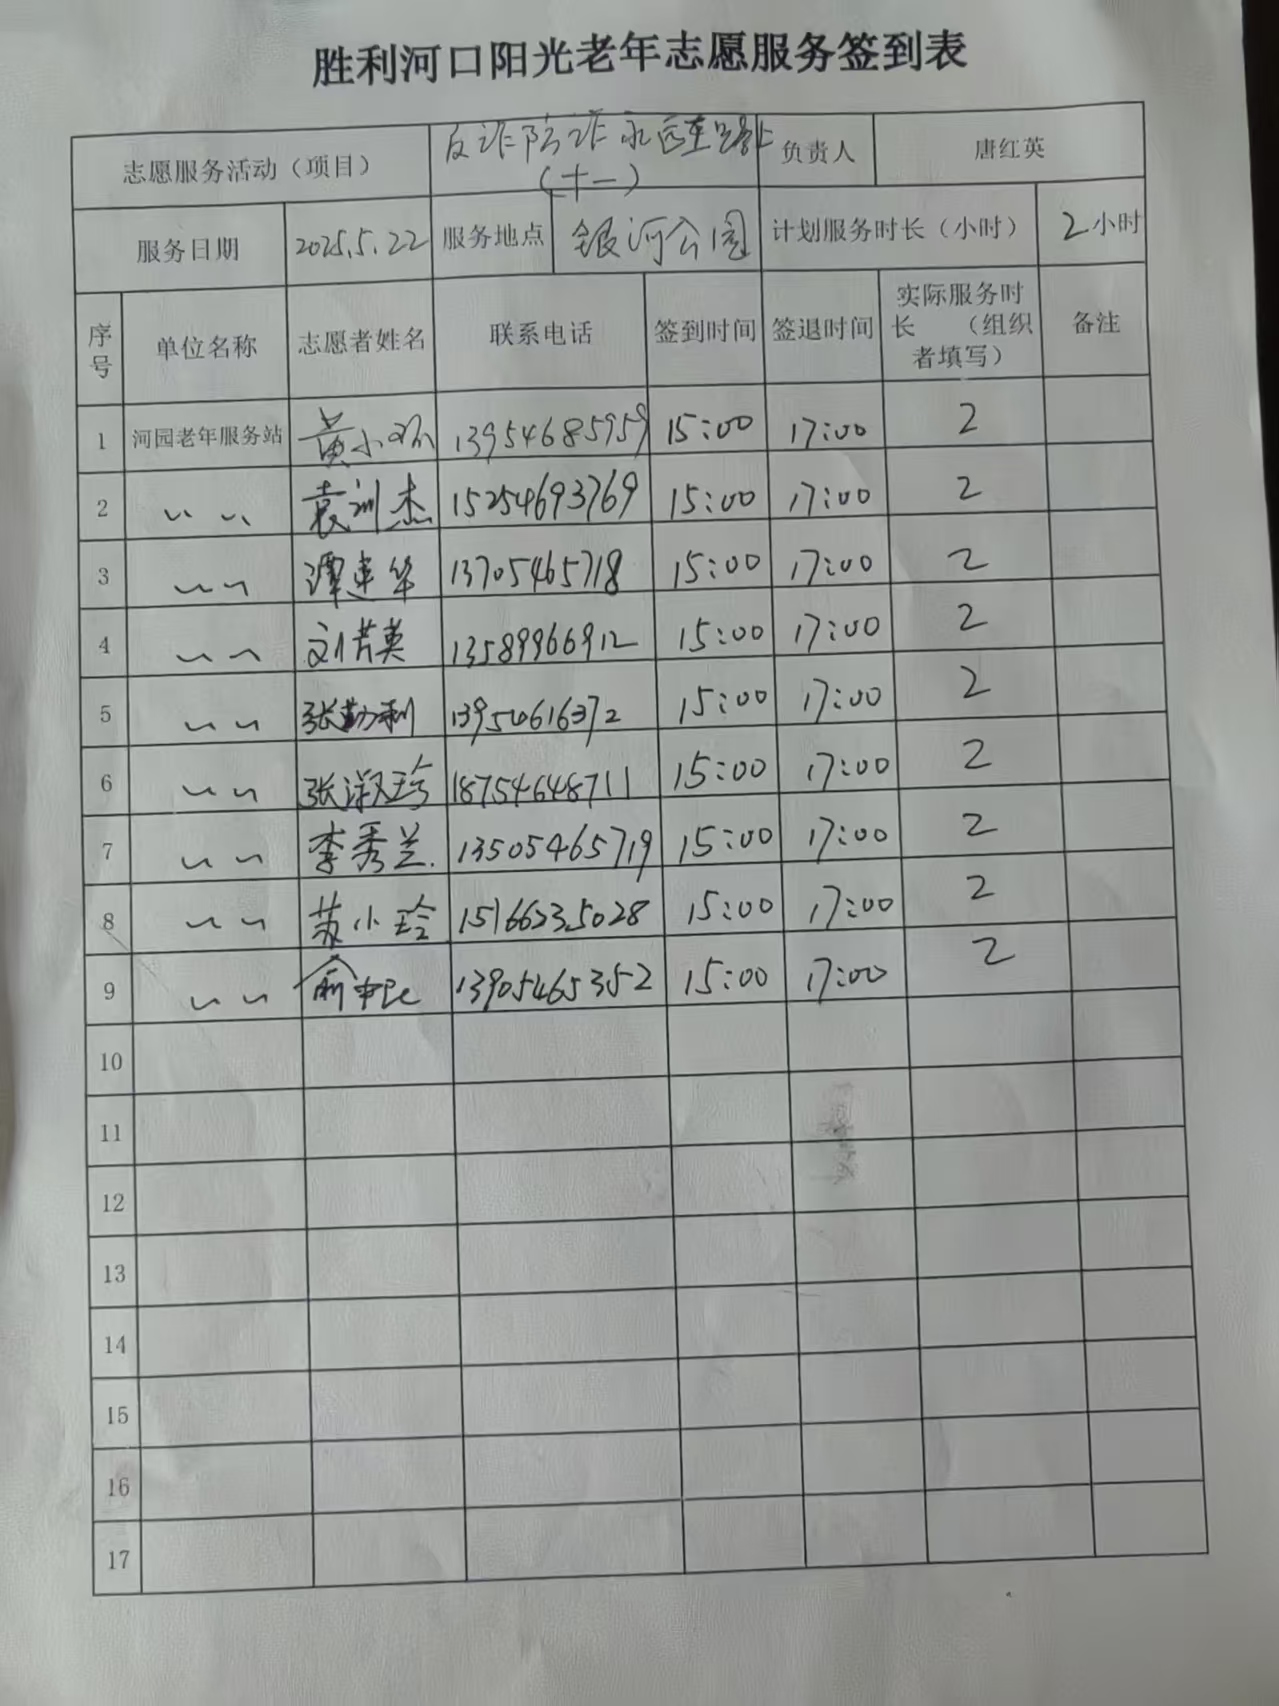 胜利河口阳光老年志愿服务签到表
志愿服务活动（项目） 反诈防诈永远在路上（十一） 负责人 唐红英
服务日期 2025.5.22 服务地点 银河公园 计划服务时长（小时） 2小时
序号 单位名称 志愿者姓名 联系电话 签到时间 签退时间 实际服务时长（组织者填写） 备注
1 河园老年服务站 黄小 13954685959 15:00 17:00 2
2 〃 〃 袁训杰 15254693769 15:00 17:00 2
3 〃 〃 谭建华 13705465718 15:00 17:00 2
4 〃 〃 刘菁英 13589966912 15:00 17:00 2
5 〃 〃 张勤利 13954616372 15:00 17:00 2
6 〃 〃 张淑玲 18754648711 15:00 17:00 2
7 〃 〃 李秀兰 13505465719 15:00 17:00 2
8 〃 〃 苏小玲 15166235028 15:00 17:00 2
9 〃 〃 俞 13905465352 15:00 17:00 2
10
11
12
13
14
15
16
17